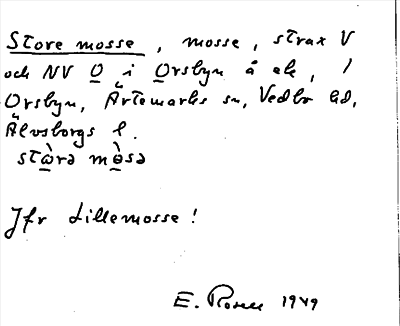 Store mosse, mosse, strax V
och NV O i Orsbyn å ek, /
Orsbyn, Ärtemarks sn, Vedbo hd,
Älvsborgs l.
stὼrə mὼsə
Jfr Lillemosse!
E. Rosell 1949